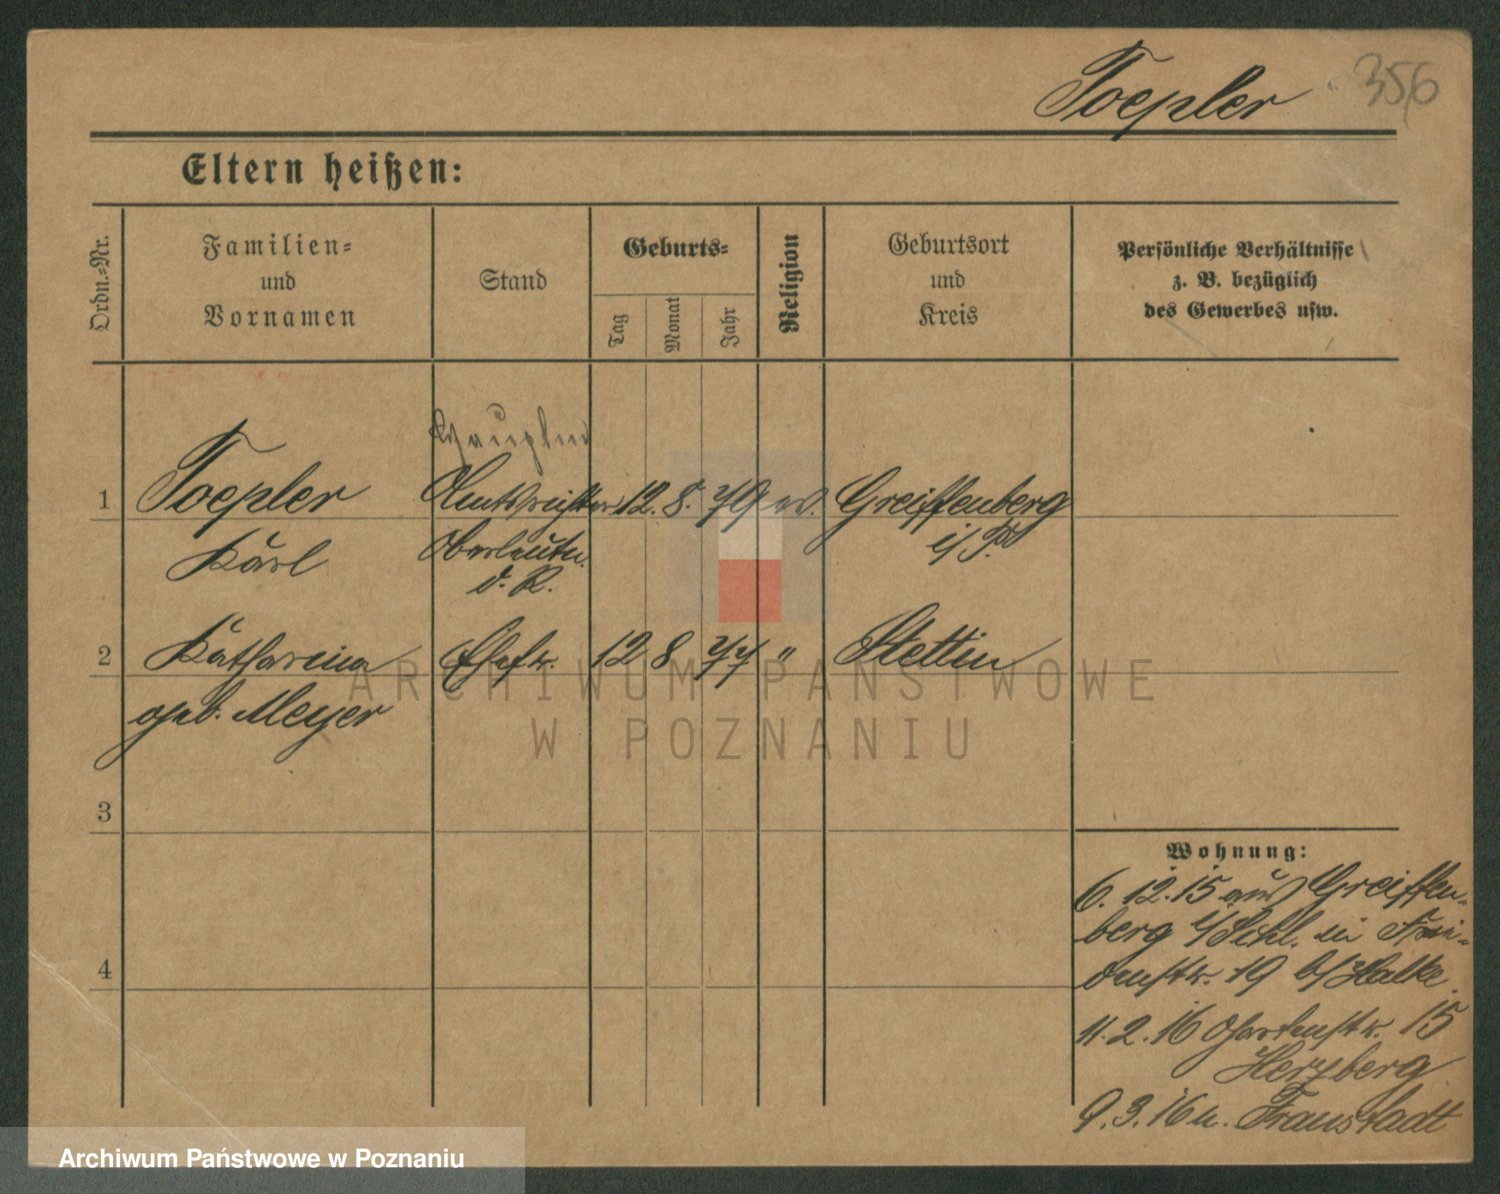 Toepler
356
Eltern heißen:
Ordn.=Nr.
Familien=
und
Vornamen
Stand
Geburts=
Tag
Monat
Jahr
Religion
Geburtsort
und
Kreis
Persönliche Verhältnisse
z. B. bezüglich
des Gewerbes usw.
Hauptm
1 Toepler Amtsrichter 12. 8. 79 ev. Greiffenberg
Karl Oberleutn. i/P.
d. R.
2 Katharina Ehefr. 12 8 77 " Stettin
geb. Meyer
3
4
Wohnung:
6. 12. 15 aus Greiffen-
berg i/Schl. in
19 b/Halke.
11. 2. 16 Gartenstr. 15
Herzberg
9. 3. 16 n. Fraustadt
ARCHIWUM PAŃSTWOWE
W POZNANIU
Archiwum Państwowe w Poznaniu